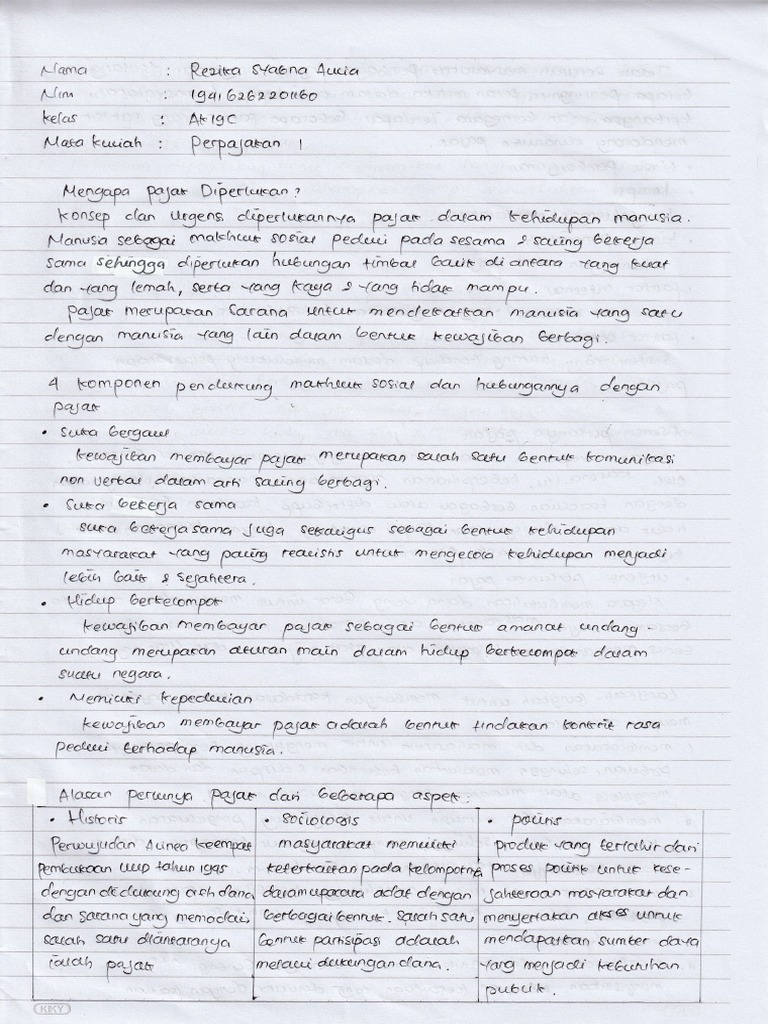 Nama : Rezika Syabna Aulia
Nim : 1941626220060
Kelas : Ak19C
Mata kuliah : Perpajakan 1
Mengapa pajak Diperlukan?
Konsep dan urgensi diperlukannya pajak dalam kehidupan manusia.
Manusia sebagai makhluk sosial peduli pada sesama & saling bekerja
sama sehingga diperlukan hubungan timbal balik di antara yang kuat
dan yang lemah, serta yang kaya & yang tidak mampu.
Pajak merupakan sarana untuk mendekatkan manusia yang satu
dengan manusia yang lain dalam bentuk kewajiban berbagi.
4 komponen pendukung makhluk sosial dan hubungannya dengan
pajak
• Suka bergaul
Kewajiban membayar pajak merupakan salah satu bentuk komunikasi
non verbal dalam arti saling berbagi.
• Suka bekerja sama
Suka bekerjasama juga sekaligus sebagai bentuk kehidupan
masyarakat yang paling realistis untuk mengelola kehidupan menjadi
lebih baik & sejahtera.
• Hidup berkelompok
Kewajiban membayar pajak sebagai bentuk amanat undang-
undang merupakan aturan main dalam hidup berkelompok dalam
suatu negara.
• Memiliki kepedulian
Kewajiban membayar pajak adalah bentuk tindakan konkrit rasa
peduli terhadap manusia.
Alasan perlunya pajak dari beberapa aspek:
• Historis
Perwujudan Alinea keempat
Pembukaan UUD tahun 1945
dengan didukung oleh dana
dan sarana yang memadai
salah satu diantaranya
ialah pajak
• Sosiologis
masyarakat memiliki
keterkaitan pada kelompotnya
dalam upacara adat dengan
berbagai bentuk. Salah satu
bentuk partisipasi adalah
melalui dukungan dana.
• politis
produk yang terlahir dari
proses politik untuk kese-
jahteraan masyarakat dan
menyertakan akses untuk
mendapatkan sumber daya
yang menjadi kebutuhan
publik.
KKY